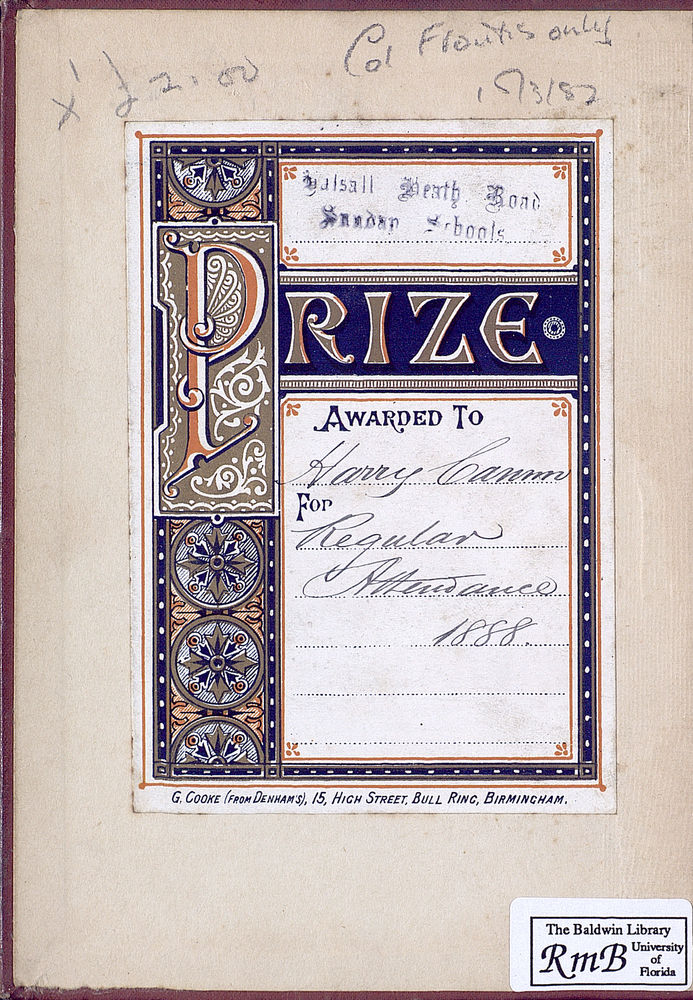 £2.00
Col Frontis only
Balsall Heath Road
Sunday Schools
PRIZE
AWARDED TO
Harry Cannon
FOR
Regular
Attendance
1888.
G. COOKE (FROM DENHAM'S), 15, HIGH STREET, BULL RING, BIRMINGHAM.
The Baldwin Library
RmB University
of
Florida